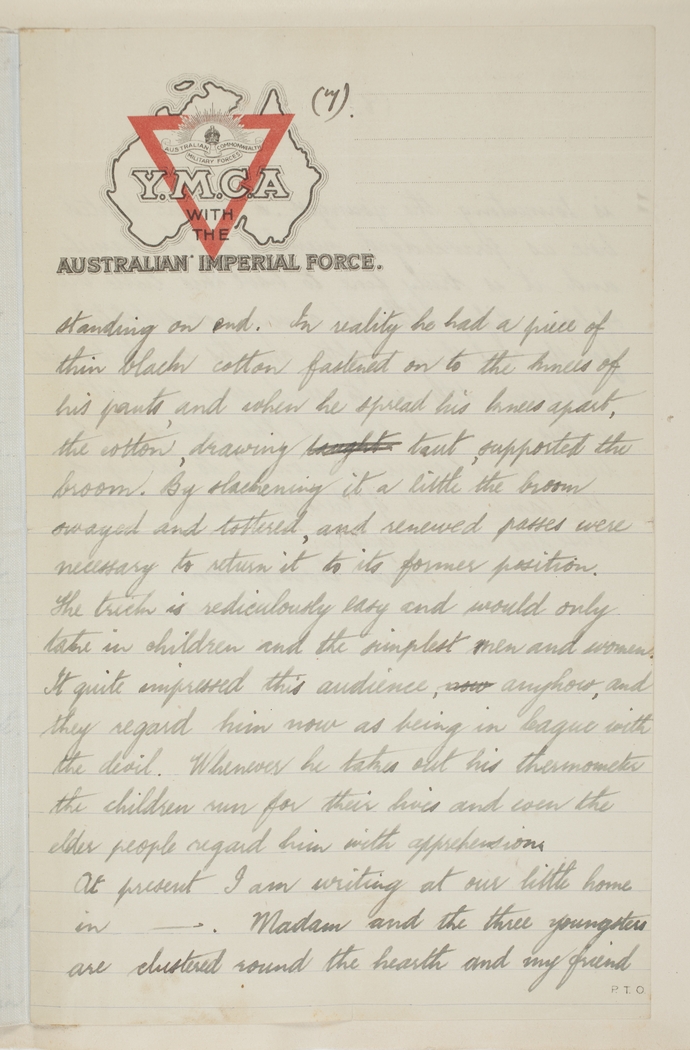 (7).
AUSTRALIAN COMMONWEALTH
MILITARY FORCES
Y.M.C.A
WITH
THE
AUSTRALIAN IMPERIAL FORCE.
standing on end. In reality he had a piece of
thin black cotton fastened on to the knees of
his pants, and when he spread his knees apart,
the cotton, drawing taught taut, supported the
broom. By slackening it a little the broom
swayed and tottered, and renewed passes were
necessary to return it to its former position.
The trick is rediculously easy and would only
take in children and the simplest men and women.
It quite impressed this audience, now anyhow, and
they regard him now as being in league with
the devil. Whenever he takes out his thermometer
the children run for their lives and even the
elder people regard him with apprehension.
At present I am writing at our little home
in —. Madam and the three youngsters
are clustered round the hearth and my friend
P.T.O.